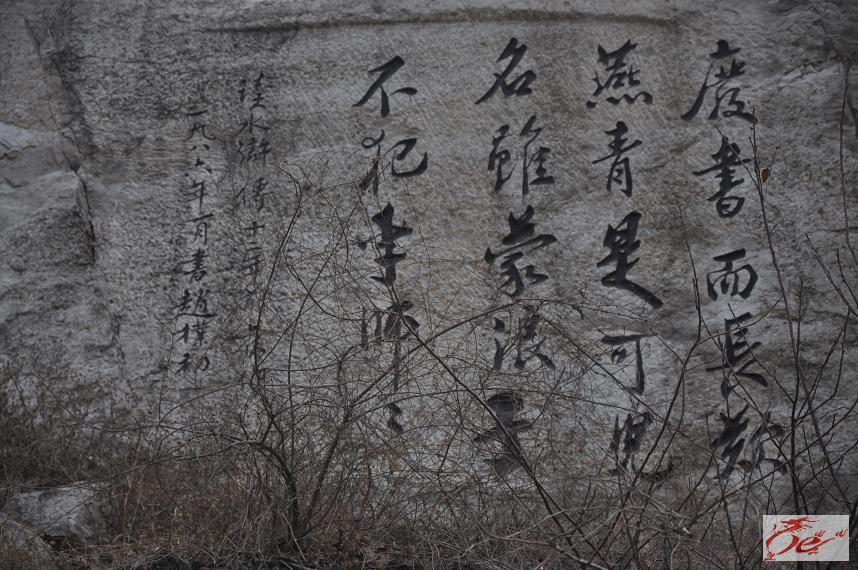 廢書而長歎
燕青是可兒
名雖蒙浪子
不犯李師〻
讀水滸傳十
一九八六年月書趙樸初